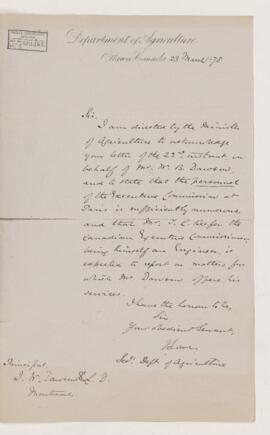 Department of Agriculture
Ottawa Canada 23 March 1878
Sir,
I am directed by the Minister
of Agriculture to acknowledge
your letter of the 22nd instant, on
behalf of Mr. W. B. Dawson,
and to state that the personnel
of the Executive Commission at
Paris is sufficiently numerous,
and that Mr. T. C. Keefer the
Canadian Executive Commissioner
being himself an Engineer, is
expected to report on matters for
which Mr. Dawson offers his
services.
I have the honour to be,
Sir
Your obedient Servant,
Secy. Dept. of Agriculture
Principal
J. W. Dawson L. D.
Montreal